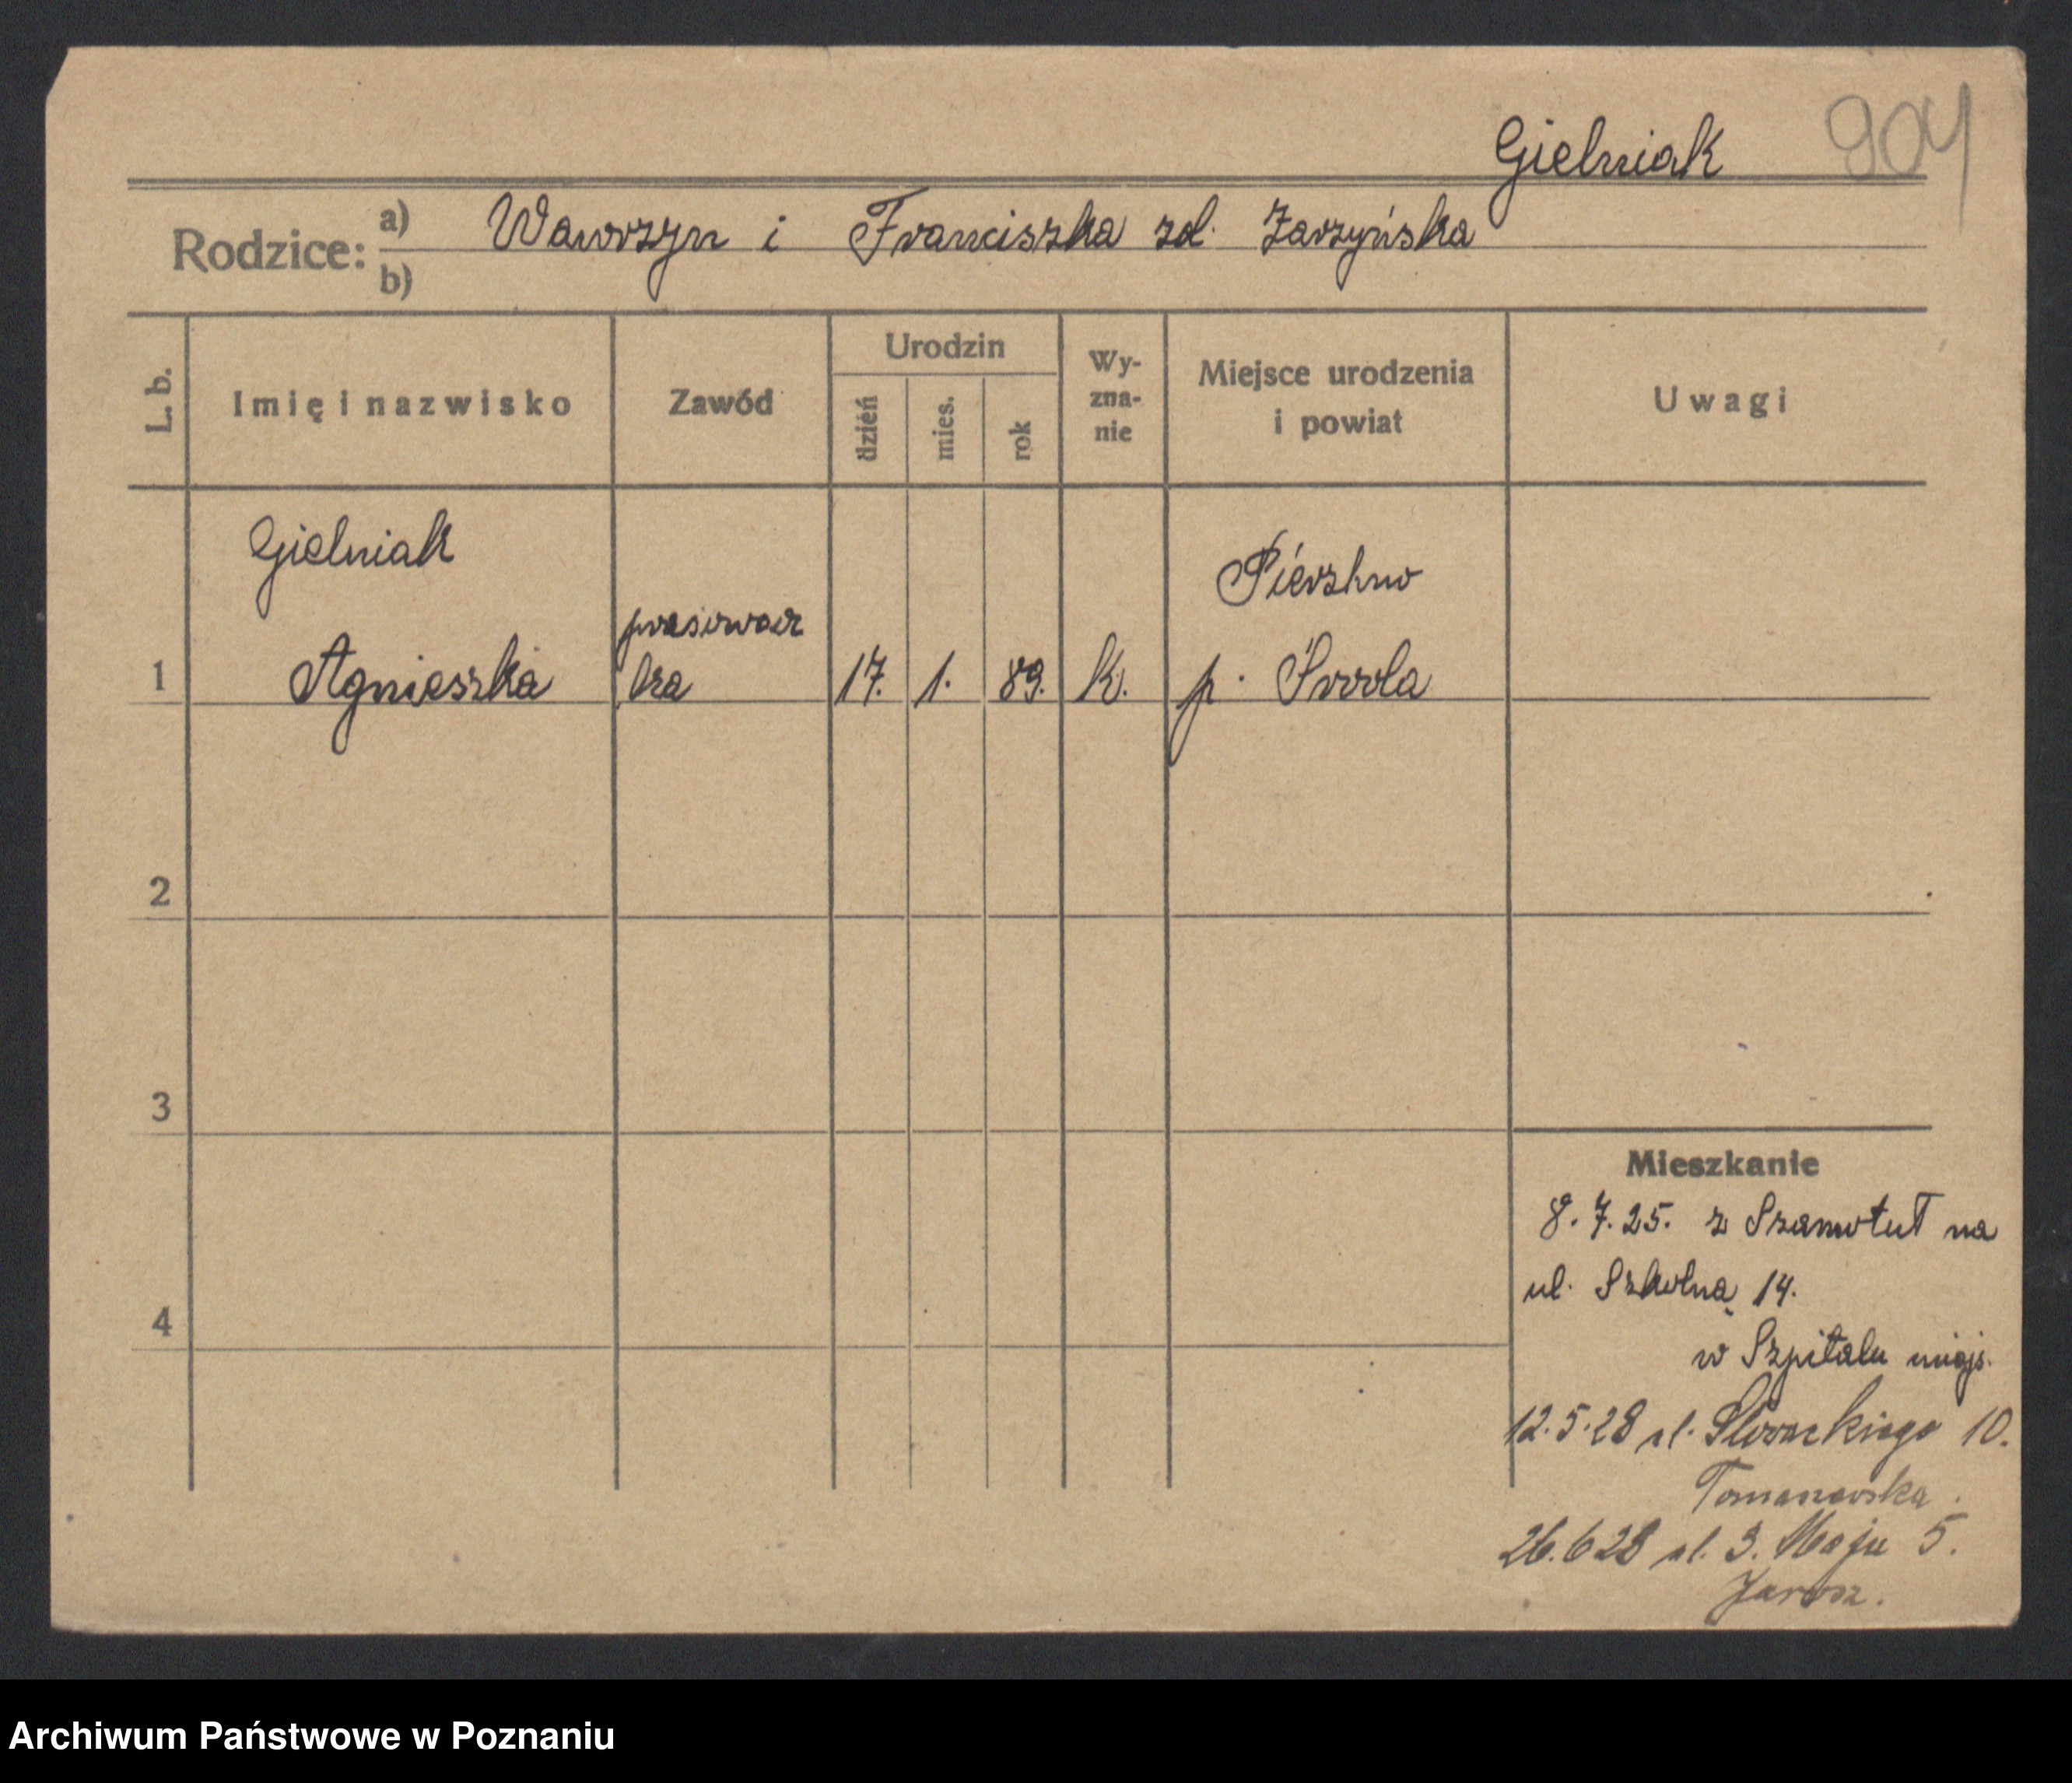 Gielniak 904
Rodzice: a) Wawrzyn i Franciszka zd. Zarzyńska
b)
L. b. Imię i nazwisko Zawód Urodzin dzień mies. rok Wy-zna-nie Miejsce urodzenia i powiat Uwagi
Gielniak
Pierzchno
prasowacz
1 Agnieszka ka 17. 1. 89. k. p. Środa
2
3
Mieszkanie
8.7.25. z Szamotuł na
ul. Szkolną 14.
4
w Szpitalu miejs.
12.5.28 ul. Słowackiego 10.
Tomanowska.
26.6 28 ul. 3. Maja 5.
Jarosz.
Archiwum Państwowe w Poznaniu